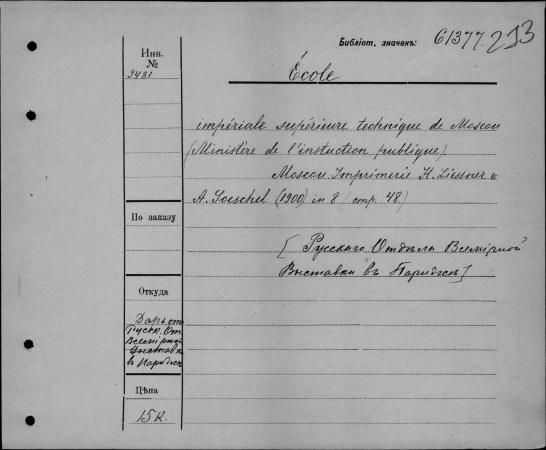 Библіот. значекъ: C1377.253
Инв.
№
2481
École
impériale supérieure technique de Moscou
(Ministère de l'instuction publique)
Moscou. Imprimerie K. Liessner &
A. Goeschel (1900) in 8 (стр. 48)
По заказу
[Русскаго Отдѣла Всемірной
Выставки въ Парижѣ]
Откуда
Даръ от
Русск. От.
Всемірной
Выставки
въ Парижѣ
Цѣна
15 к.